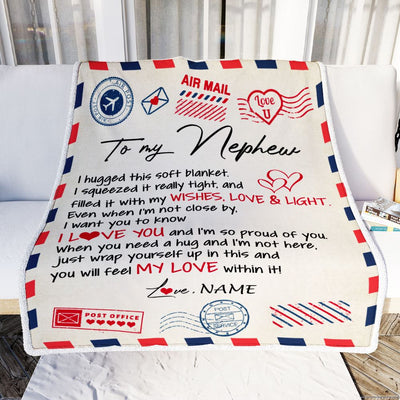 AIR MAIL
Love
U
To my Nephew
I hugged this soft blanket.
I squeezed it really tight, and
filled it with my WISHES, LOVE & LIGHT.
Even when I'm not close by.
I want you to know
I LOVE YOU and I'm so proud of you.
When you need a hug and I'm not here,
just wrap yourself up in this and
you will feel MY LOVE within it!
Love, NAME
POST OFFICE